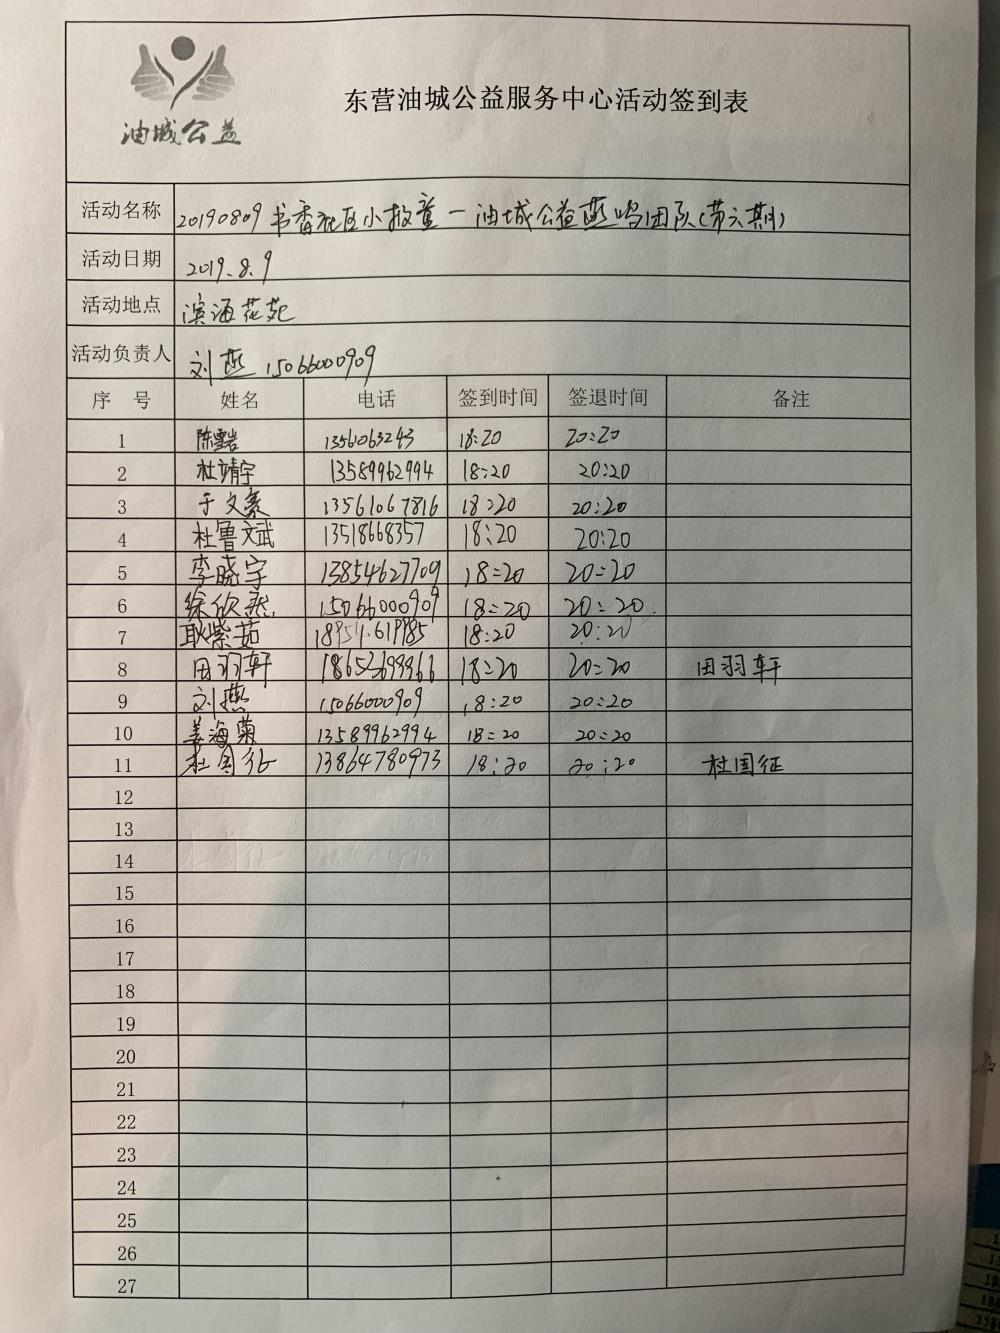 油城公益
东营油城公益服务中心活动签到表
活动名称 20190809书香社区小牧童—油城公益燕鸣团队(第六期)
活动日期 2019.8.9
活动地点 滨海花苑
活动负责人 刘燕 15066000909
序号 姓名 电话 签到时间 签退时间 备注
1 陈 13561063243 18:20 20:20
2 杜靖宇 13589962994 18:20 20:20
3 于文豪 13561067816 18:20 20:20
4 杜鲁斌 13518668357 18:20 20:20
5 李晓宇 13854627709 18:20 20:20
6 徐欣燕 15066000909 18:20 20:20
7 耿紫茹 18:20 20:20
8 田羽轩 18653699966 18:20 20:20 田羽轩
9 刘燕 15066000909 18:20 20:20
10 姜海菊 13589962994 18:20 20:20
11 杜国征 13864780973 18:20 20:20 杜国征
12
13
14
15
16
17
18
19
20
21
22
23
24
25
26
27